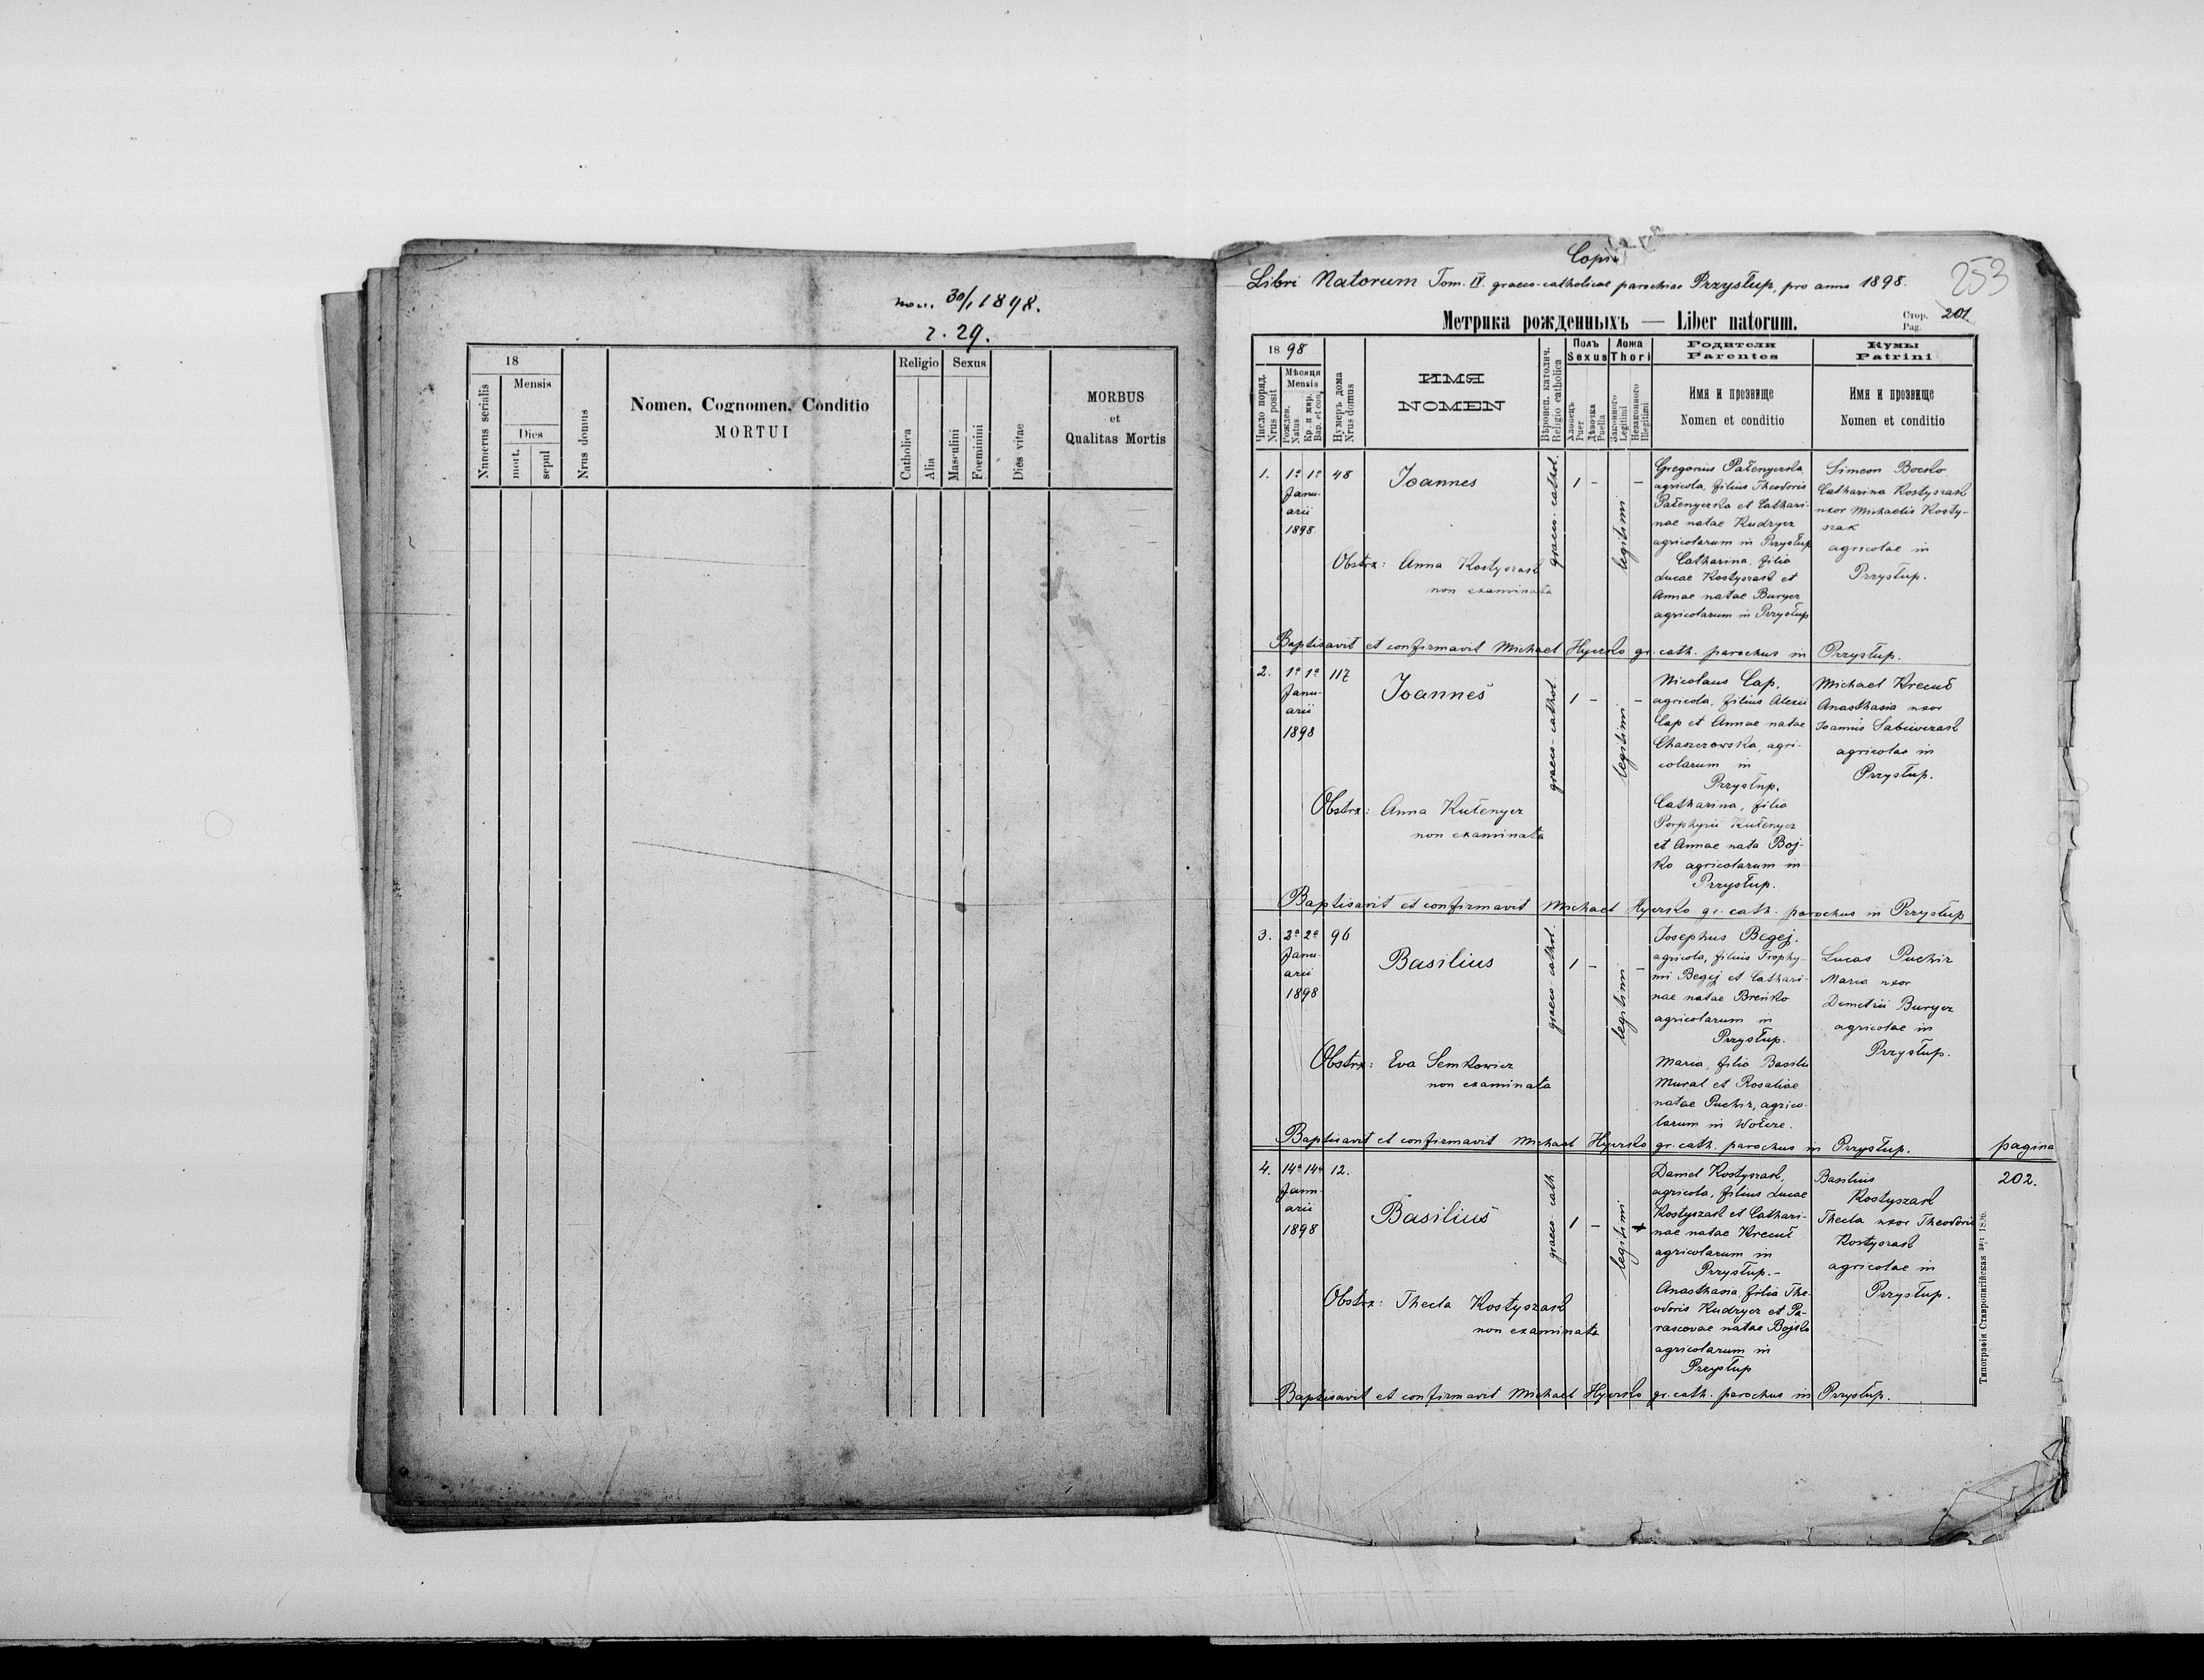 30/1 1898.
r. 29.
18
Mensis
Dies
Numerus serialis
mort.
sepul
Nrus domus
Nomen, Cognomen, Conditio
MORTUI
Religio
Sexus
Catholica
Alia
Masculini
Foeminini
Dies vitae
MORBUS
et
Qualitas Mortis
Copia
Libri Natorum Tom. IV. graeco-catholicae parochiae Przysłup, pro anno 1898.
253
Метрика рожденныхъ — Liber natorum.
Стор. 201
Pag.
18 98
Число поряд.
Nrus posit
Мѣсяця
Mensis
Рожден.
Natus
Кр. и мир.
Bap. et con.
Нумеръ дома
Nrus domus
ИМЯ
NOMEN
Вѣроисп. католич.
Religio catholica
Полъ
Sexus
Хлопецъ
Puer
Дѣвочка
Puella
Ложа
Thori
Законного
Legitimi
Незаконного
Illegitimi
Родители
Parentes
Имя и прозвище
Nomen et conditio
Кумы
Patrini
Имя и прозвище
Nomen et conditio
1. 1ª 1ª 48
Janu-
arii
1898.
Joannes
Obstrx: Anna Kostyszak
non examinata
graeco-cathol.
1 -
legitimi
-
Gregorius Pałenyczka,
agricola, filius Theodoris
Pałenyczka et Cathari-
nae natae Kudrycz
agricolarum in Przysłup
Catharina, filia
Lucae Kostyszak et
Annae natae Burycz
agricolarum in Przysłup
Simeon Bocsko
Catharina Kostyszak
uxor Michaelis Kosty-
szak
agricolae in
Przysłup.
Baptisavit et confirmavit Michael Hyersko gr. cath. parochus in Przysłup.
2. 1ª 1ª 117
Janu-
arii
1898
Joannes
Obstrx: Anna Kułenycz
non examinata
graeco-cathol.
1 -
legitimi
-
Nicolaus Cap,
agricola, filius Alexii
Cap et Annae natae
Chaszczowska, agri-
colarum in
Przysłup.
Catharina, filia
Porphyrii Kułenycz
et Annae nata Boj-
ko agricolarum in
Przysłup.
Michael Krecuł
Anasthasia uxor
Joannis Sabiwczak
agricolae in
Przysłup.
Baptisavit et confirmavit Michael Hyersko gr. cath. parochus in Przysłup
3. 2ª 2ª 96
Janu-
arii
1898
Basilius
Obstrx: Eva Semkowicz
non examinata
graeco-cathol.
1 -
legitimi
-
Josephus Begej.
agricola, filius Trophy-
mi Begej et Cathari-
nae natae Breńko
agricolarum in
Przysłup.
Maria, filia Basilii
Mural et Rosaliae
natae Puchir, agrico-
larum in Wołcze.
Lucas Puchir
Maria uxor
Demetrii Burycz
agricolae in
Przysłup.
Baptisavit et confirmavit Michael Hyersko gr. cath. parochus in Przysłup. pagina
4. 14ª 14ª 12.
Janu-
arii
1898
Basilius
Obstrx: Thecla Kostyszak
non examinata
graeco-cath
1 -
legitimi
+
Daniel Kostyszak,
agricola, filius Lucae
Kostyszak et Cathari-
nae natae Krecuł
agricolarum in
Przysłup.-
Anasthasia, filia The-
odoris Kudrycz et Pa-
rascevae natae Bojko
agricolarum in
Przysłup
Basilius
Kostyszak
Thecla uxor Theodoris
Kostyszak
agricolae in
Przysłup.
202.
Baptisavit et confirmavit Michael Hyersko gr. cath. parochus in Przysłup.
Типографія Ставропигійская